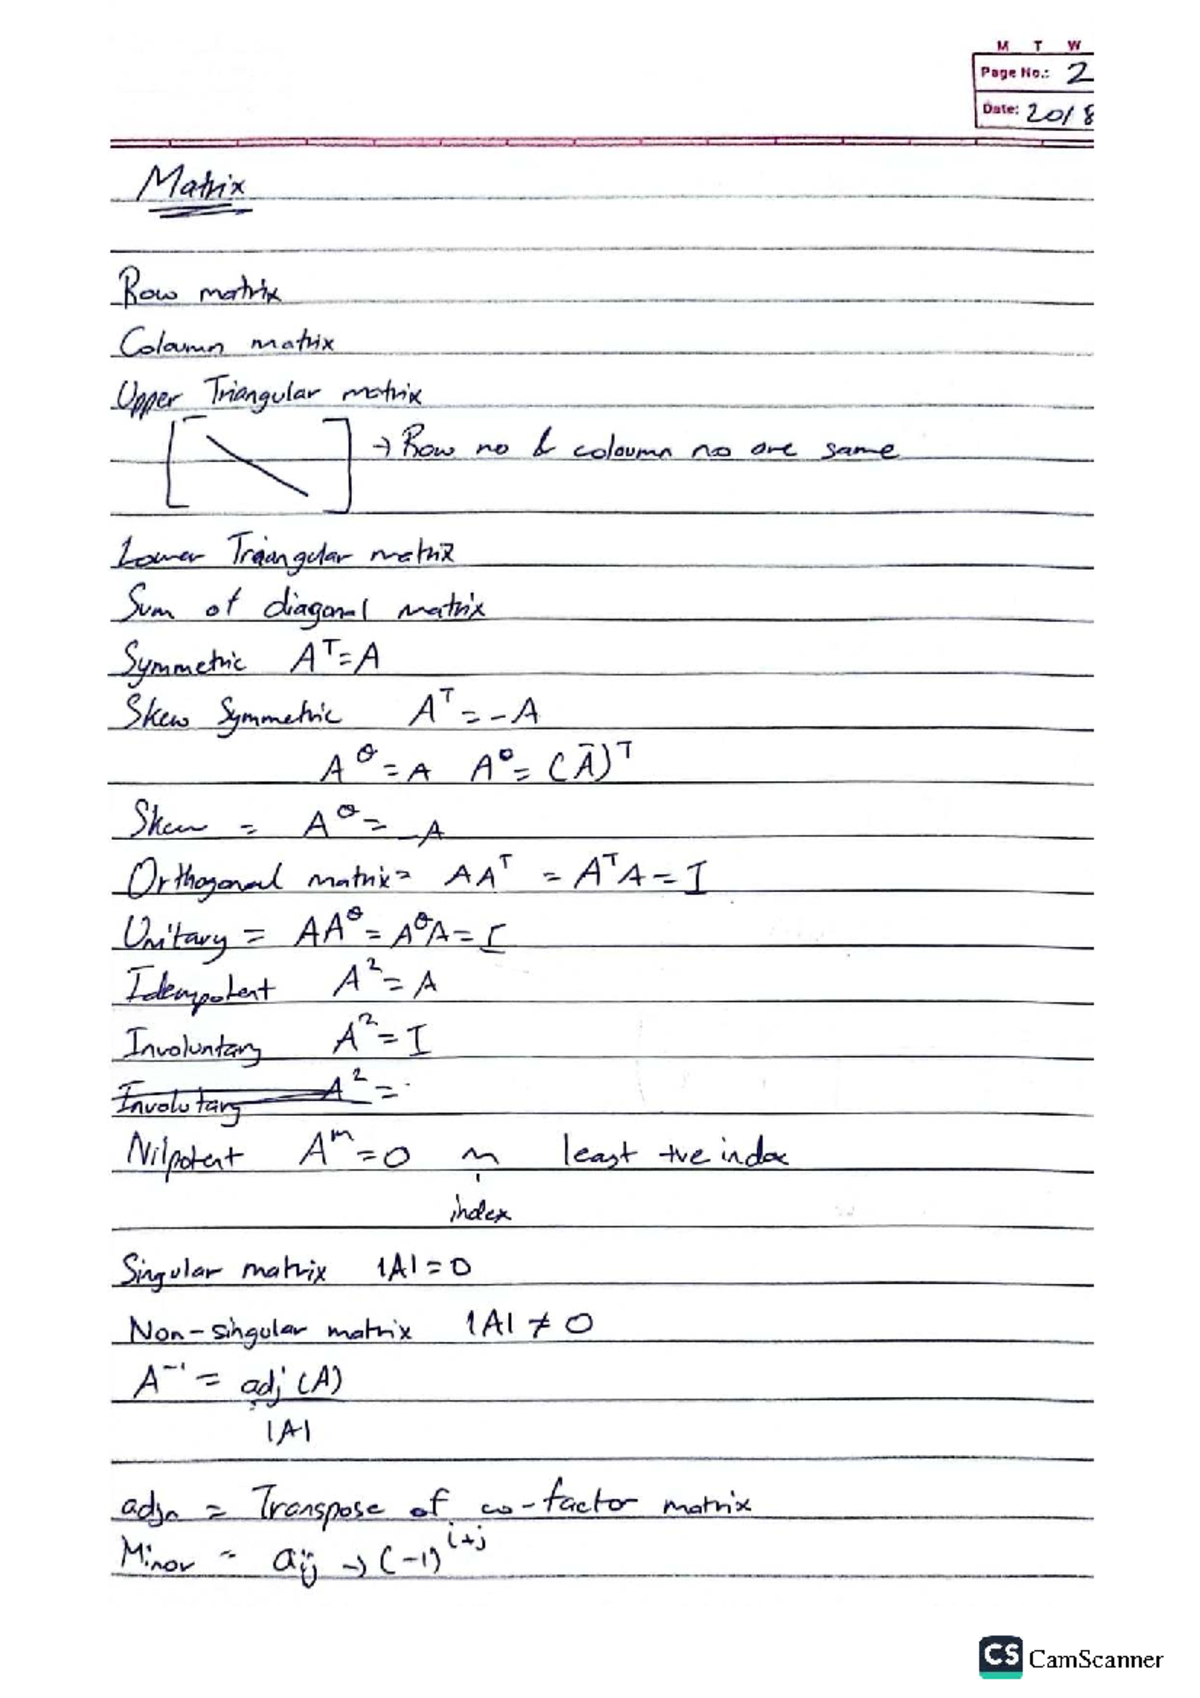 M T W
Page No.: 2
Date: 20/8
Matrix
Row matrix
Coloumn matrix
Upper Triangular matrix
→ Row no & coloumn no are same
Lower Triangular matrix
Sum of diagonal matrix
Symmetric Aᵀ = A
Skew Symmetric Aᵀ = -A
A^θ = A A^θ = (Ā)ᵀ
Skew = A^θ = -A
Orthogonal matrix = AAᵀ = AᵀA = I
Unitary = AA^θ = A^θA = I
Idempotent A² = A
Involuntary A² = I
Involutary A² =
Nilpotent Aᵐ = 0 m least +ve index
index
Singular matrix |A| = 0
Non-singular matrix |A| ≠ 0
A⁻¹ = adj (A)
|A|
adjn = Transpose of co-factor matrix
Minor = aij → (-1)^(i+j)
CS CamScanner